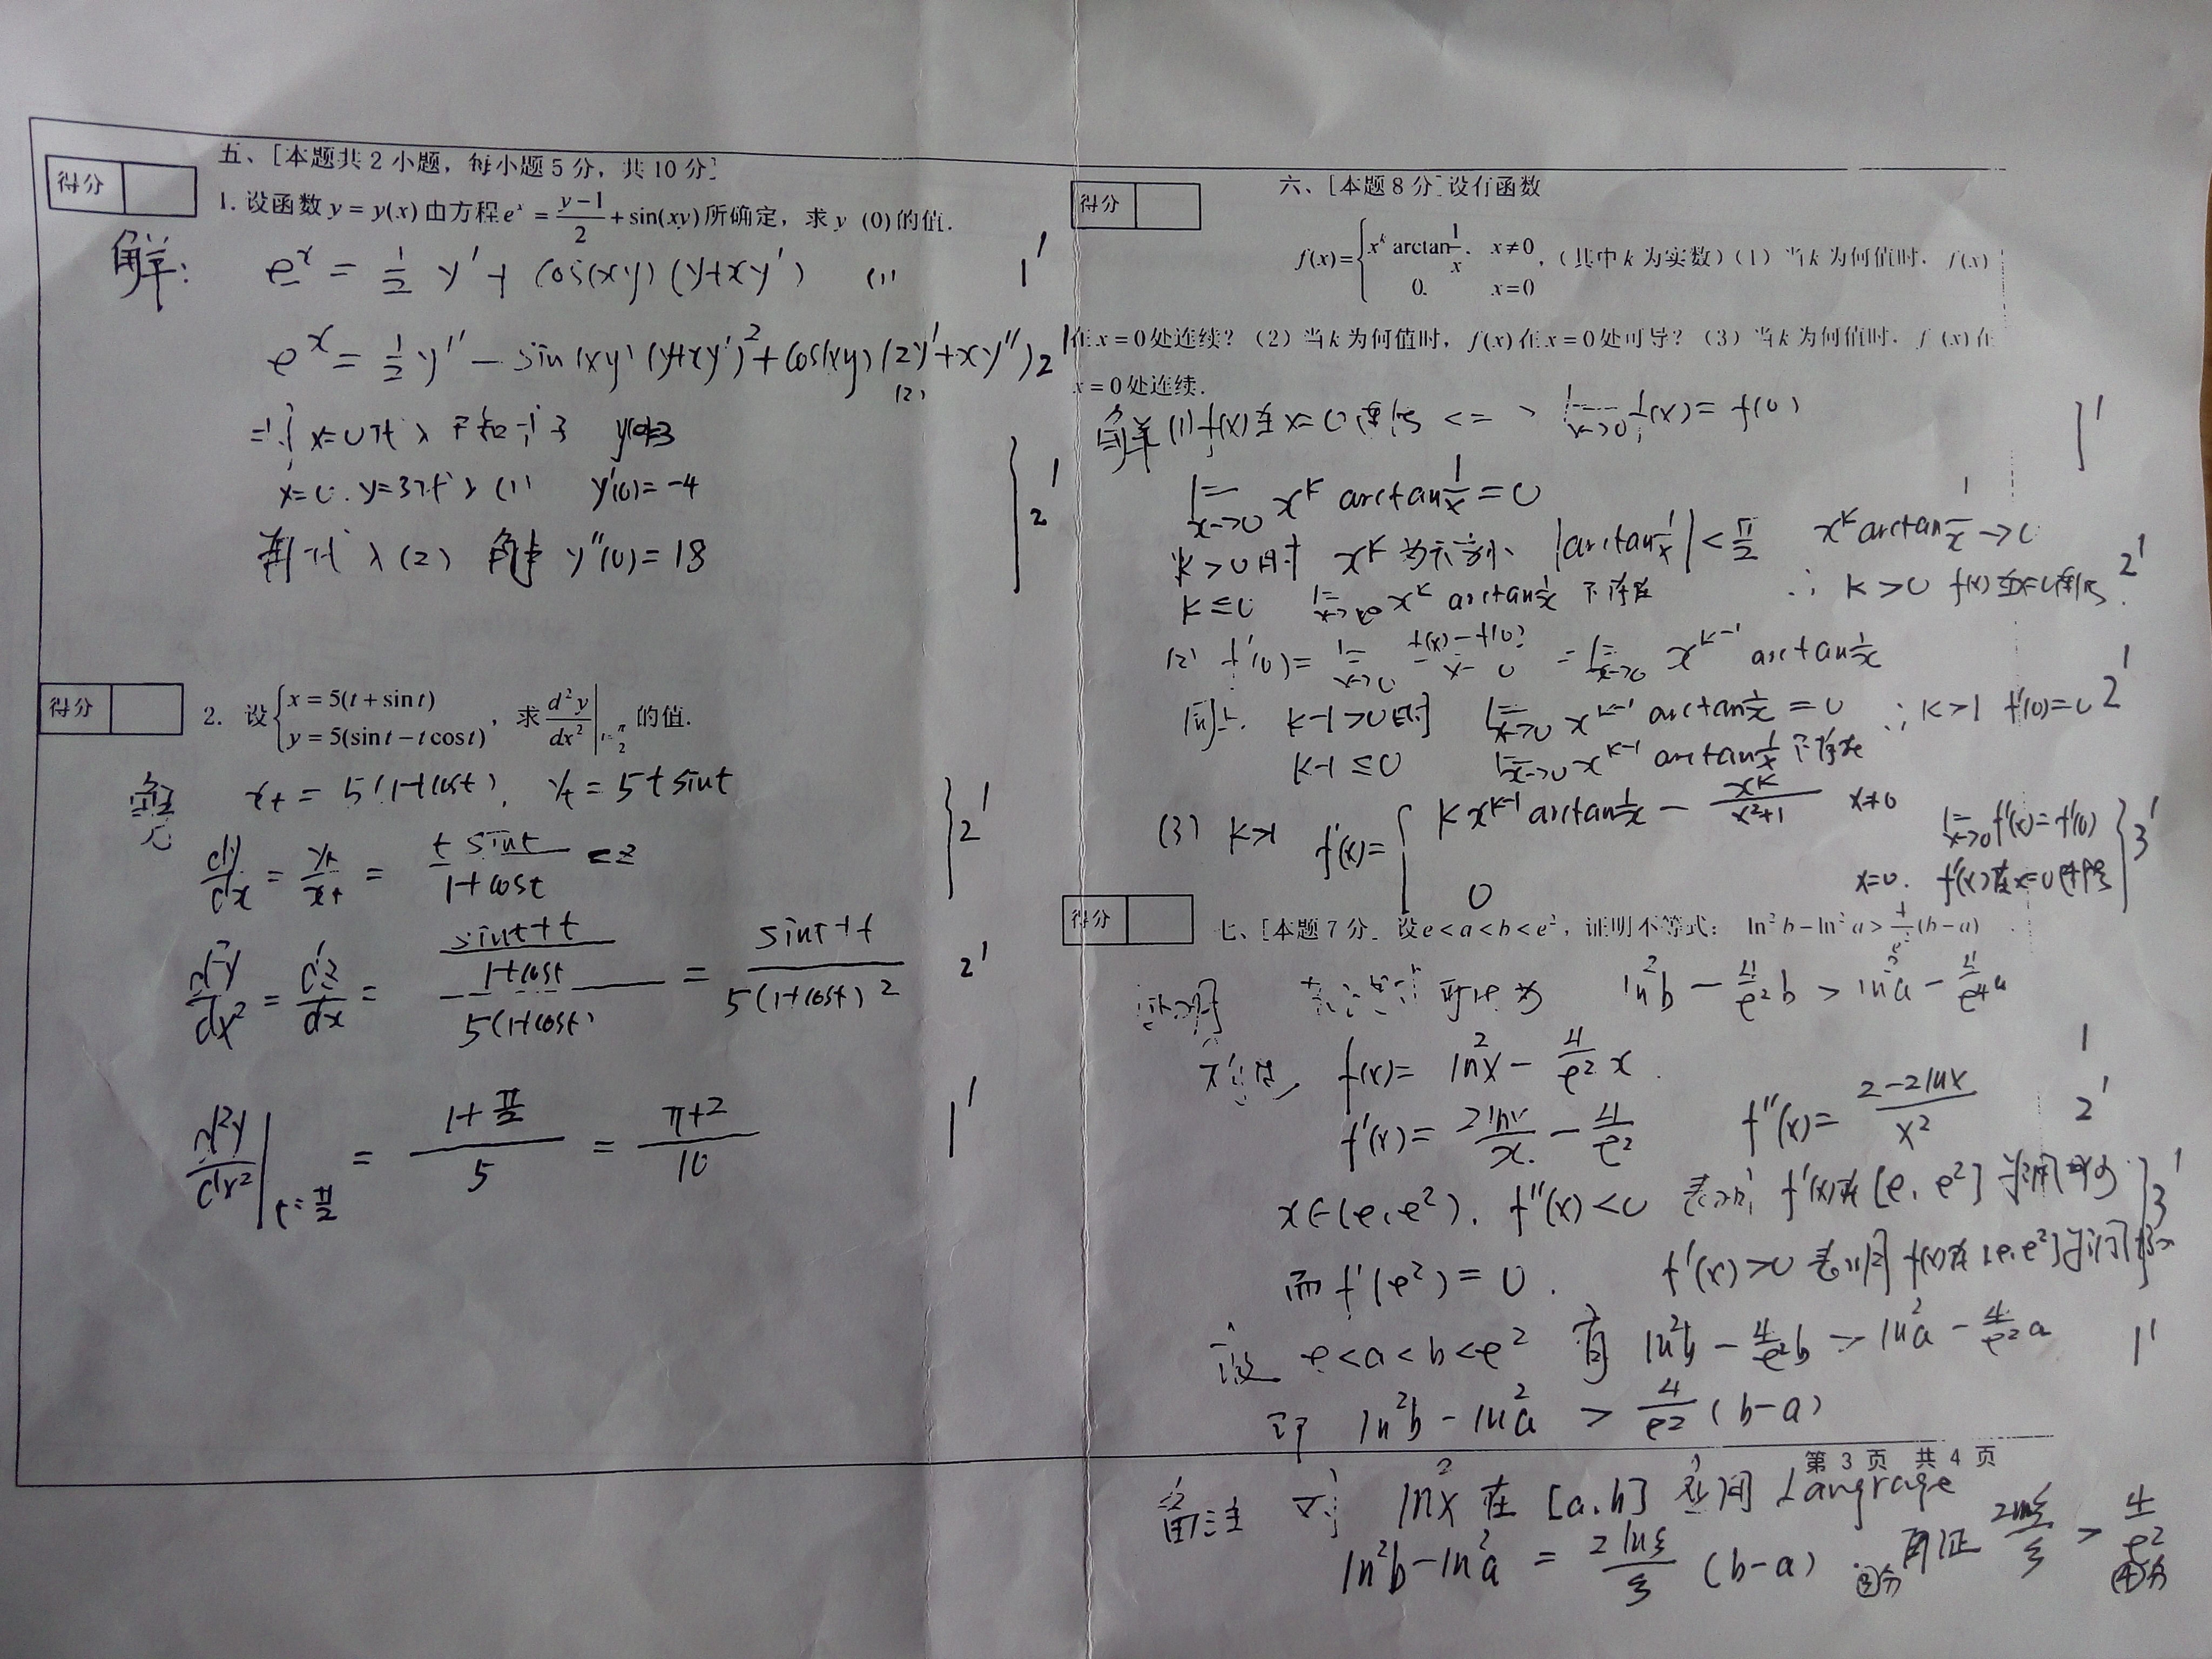 得分
五、[本题共2小题，每小题5分，共10分]
1. 设函数 y = y(x) 由方程 e^x = (y-1)/2 + sin(xy) 所确定，求 y (0) 的值.
解: e^x = 1/2 y' + cos(xy) (y+xy') (1) 1'
e^x = 1/2 y'' - sin(xy) (y+xy')^2 + cos(xy) (2y'+xy'') (2) 2'
x=0 代入 y(0)=3
x=0. y=3代入 (1) y'(0)=-4
再代入(2) 解得 y''(0)=18 2'
得分
2. 设 { x = 5(t+sin t) y = 5(sin t - t cos t) , 求 d²y/dx² | t=π/2 的值.
解 x_t = 5(1+cost), y_t = 5t sint
dy/dx = y_t/x_t = t sint/(1+cost) = z 2'
d²y/dx² = dz/dx = ((sint+t)/(1+cost))/(5(1+cost)) = (sint+t)/(5(1+cost)^2) 2'
d²y/dx² | t=π/2 = (1+π/2)/5 = (π+2)/10 1'
得分
六、[本题8分]设有函数
f(x)= { x^k arctan 1/x, x≠0 0, x=0 ,（其中k为实数）（1）当k为何值时，f(x)
在x=0处连续？（2）当k为何值时，f(x)在x=0处可导？（3）当k为何值时，f (x)在
x=0处连续.
解 (1) f(x)在x=0连续 <=> lim x→0 f(x) = f(0) 1'
lim x→0 x^k arctan 1/x = 0
k>0时 x^k 为无穷小 |arctan 1/x| < π/2 x^k arctan 1/x → 0
k≤0 lim x→0 x^k arctan 1/x 不存在 ∴ k>0 f(x)在x=0连续. 2'
(2) f'(0) = lim x→0 (f(x)-f(0))/(x-0) = lim x→0 x^(k-1) arctan 1/x
同上. k-1>0时 lim x→0 x^(k-1) arctan 1/x = 0 ∴ k>1 f'(0)=0 2'
k-1≤0 lim x→0 x^(k-1) arctan 1/x 不存在
(3) k>1 f'(x)= { k x^(k-1) arctan 1/x - x^k/(x²+1) x≠0 lim x→0 f'(x)=f'(0)
0 x=0. f'(x)在x=0连续 3'
得分
七、[本题7分] 设 e<a<b<e², 证明不等式: ln²b - ln²a > 4/e² (b-a)
证明 可化为 ln²b - 4/e² b > ln²a - 4/e² a
f(x) = ln²x - 4/e² x. 1
f'(x) = 2lnx/x - 4/e² f''(x) = (2-2lnx)/x² 2'
x∈(e, e²). f''(x)<0 表明 f'(x)在[e, e²]单调减少
而 f'(e²) = 0. f'(x)>0 表明 f(x)在[e, e²]单调增加 3'
设 e<a<b<e² 有 ln²b - 4/e² b > ln²a - 4/e² a 1'
即 ln²b - ln²a > 4/e² (b-a)
第 3 页 共 4 页
备注 对 ln²x 在 [a, b] 应用 Langrage
ln²b - ln²a = 2lnξ/ξ (b-a) ③分 再证 2lnξ/ξ > 4/e² ④分